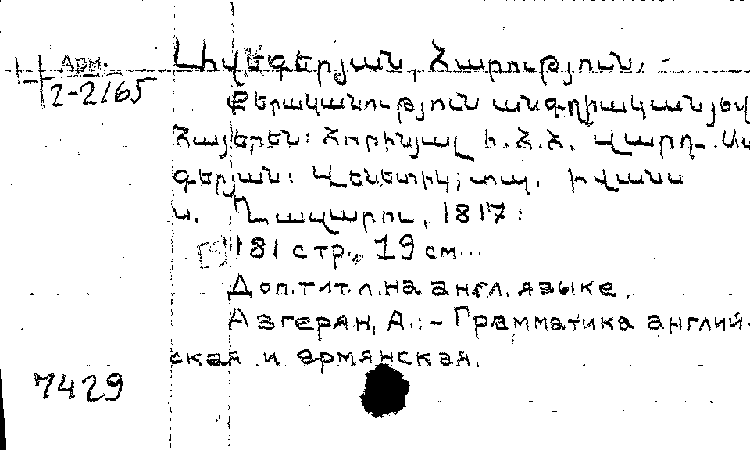 Арм.
2-2165
Հարություն. -
Քերականություն անգղիական յեվ
հայերեն: Հորինյալ ի. Հ. Հ.
գերյան: Վենետիկ; տպ. ի վանս
ս. Ղազարու, 1817:
181 стр., 19 см
Доп. тит. л. на англ. языке.
Азгерян, А. :- Грамматика англий-
ская и армянская.
7429